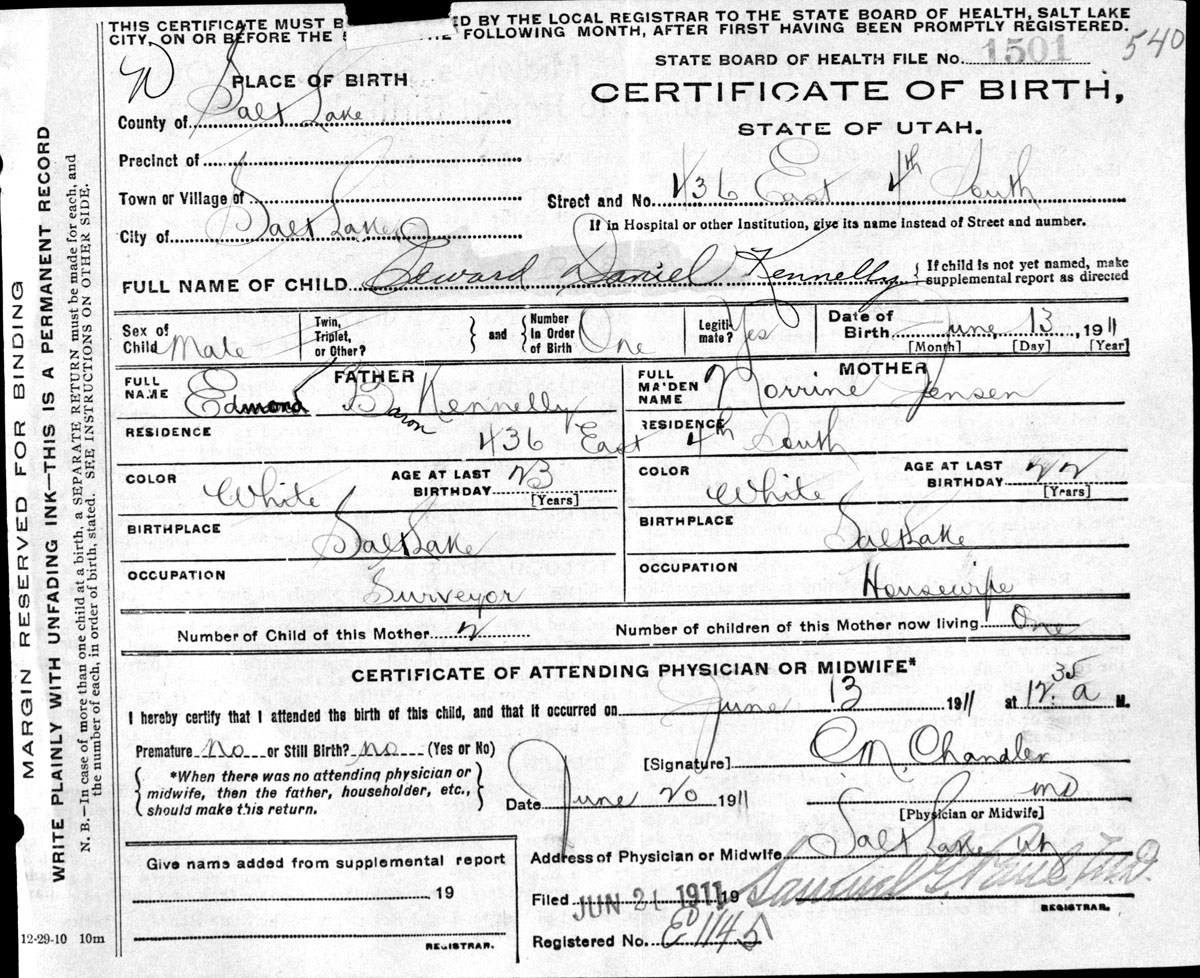 THIS CERTIFICATE MUST B ED BY THE LOCAL REGISTRAR TO THE STATE BOARD OF HEALTH, SALT LAKE
CITY, ON OR BEFORE THE FOLLOWING MONTH, AFTER FIRST HAVING BEEN PROMPTLY REGISTERED.
540
STATE BOARD OF HEALTH FILE No. 1501
PLACE OF BIRTH
CERTIFICATE OF BIRTH,
County of Salt Lake
STATE OF UTAH.
Precinct of
Town or Village of
Street and No. 436 East 4th South
City of Salt Lake
If in Hospital or other Institution, give its name instead of Street and number.
FULL NAME OF CHILD Edward Daniel Kennelly { If child is not yet named, make supplemental report as directed
Sex of Child Male
Twin, Triplet, or Other? } and { Number in Order of Birth One
Legitimate? Yes
Date of Birth June 13, 1911
[Month] [Day] [Year]
FATHER
FULL NAME Edmond Baron Kennelly
MOTHER
FULL MAIDEN NAME Norrine Jensen
RESIDENCE 436 East 4th South
RESIDENCE
COLOR White
AGE AT LAST BIRTHDAY 23 [Years]
COLOR White
AGE AT LAST BIRTHDAY 22 [Years]
BIRTHPLACE Salt Lake
BIRTHPLACE Salt Lake
OCCUPATION Surveyor
OCCUPATION Housewife
Number of Child of this Mother 2
Number of children of this Mother now living One
CERTIFICATE OF ATTENDING PHYSICIAN OR MIDWIFE*
I hereby certify that I attended the birth of this child, and that it occurred on June 13 1911 at 12.30 a M.
Premature No or Still Birth? No (Yes or No)
[Signature] C M. Chandler
{ *When there was no attending physician or midwife, then the father, householder, etc., should make this return. }
Date June 20 1911
MD
[Physician or Midwife]
Address of Physician or Midwife Salt Lake Ut
Give name added from supplemental report
19
REGISTRAR.
Filed JUN 21 1911 19 Samuel G. Paul, M.D.
REGISTRAR.
Registered No. E 1145
12-29-10 10m
MARGIN RESERVED FOR BINDING
WRITE PLAINLY WITH UNFADING INK—THIS IS A PERMANENT RECORD
N. B.—In case of more than one child at a birth, a SEPARATE RETURN must be made for each, and
the number of each, in order of birth, stated. SEE INSTRUCTIONS ON OTHER SIDE.